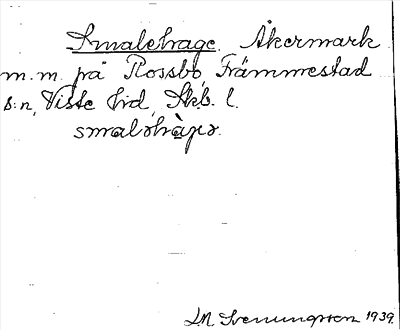 Smalehage. Åkermark
m. m. på Rossbo, Främmestad
s:n, Viste hd, Skb. l.
L.M. Svenungsson 1939.